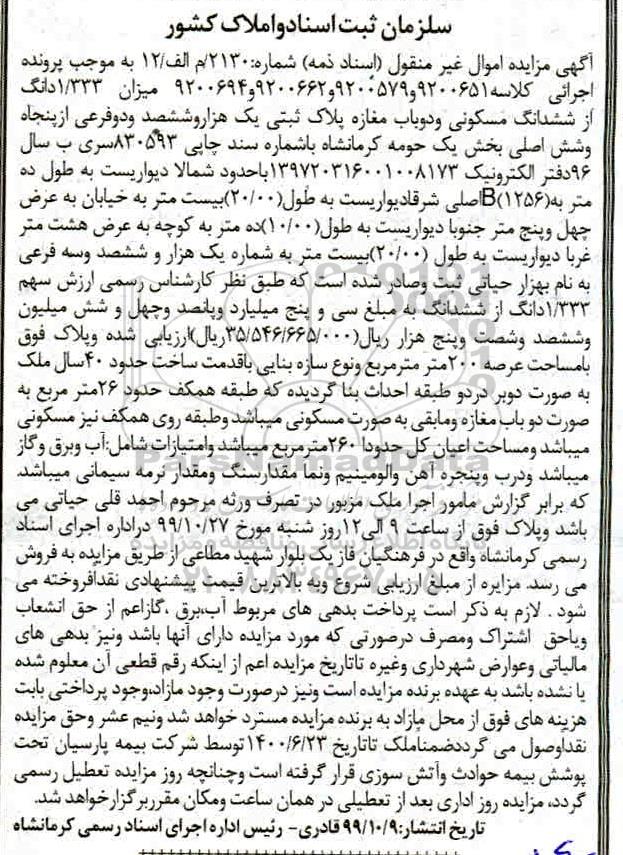 سلزمان ثبت اسنادواملاک کشور
آگهی مزایده اموال غیر منقول (اسناد ذمه) شماره:۲۱۳۰/م الف/۱۲ به موجب پرونده
اجرائی کلاسه۹۲۰۰۶۵۱و۹۲۰۰۵۷۹و۹۲۰۰۶۶۲و۹۲۰۰۶۹۴ میزان ۱/۳۳۳دانگ
از ششدانگ مسکونی ودوباب مغازه پلاک ثبتی یک هزاروششصد ودوفرعی ازپنجاه
وشش اصلی بخش یک حومه کرمانشاه باشماره سند چاپی ۸۳۰۵۹۳سری ب سال
۹۶دفتر الکترونیک ۱۳۹۷۲۰۳۱۶۰۰۱۰۰۸۱۷۳باحدود شمالا دیواریست به طول ده
متر به(۱۲۵۶)Bاصلی شرقادیواریست به طول(۲۰/۰۰)بیست متر به خیابان به عرض
چهل وپنج متر جنوبا دیواریست به طول(۱۰/۰۰)ده متر به کوچه به عرض هشت متر
غربا دیواریست به طول (۲۰/۰۰)بیست متر به شماره یک هزار و ششصد وسه فرعی
به نام بهزار حیاتی ثبت وصادر شده است که طبق نظر کارشناس رسمی ارزش سهم
۱/۳۳۳دانگ از ششدانگ به مبلغ سی و پنج میلیارد وپانصد وچهل و شش میلیون
وششصد وشصت وپنج هزار ریال(۳۵/۵۴۶/۶۶۵/۰۰۰ریال)ارزیابی شده وپلاک فوق
بامساحت عرصه ۲۰۰متر مترمربع ونوع سازه بنایی باقدمت ساخت حدود ۴۰سال ملک
به صورت دوبر دردو طبقه احداث بنا گردیده که طبقه همکف حدود ۲۶متر مربع به
صورت دو باب مغازه ومابقی به صورت مسکونی میباشد وطبقه روی همکف نیز مسکونی
میباشد ومساحت اعیان کل حدودا ۲۶۰مترمربع میباشد وامتیازات شامل:آب وبرق وگاز
میباشد ودرب وپنجره آهن والومینیم ونما مقدارسنگ ومقدار نرمه سیمانی میباشد.
که برابر گزارش مامور اجرا ملک مزبور در تصرف ورثه مرحوم احمد قلی حیاتی می
باشد وپلاک فوق از ساعت ۹ الی۱۲روز شنبه مورخ ۹۹/۱۰/۲۷ دراداره اجرای اسناد
رسمی کرمانشاه واقع در فرهنگیان فاز یک بلوار شهید مطاعی از طریق مزایده به فروش
می رسد. مزایره از مبلغ ارزیابی شروع وبه بالاترین قیمت پیشنهادی نقدافروخته می
شود . لازم به ذکر است پرداخت بدهی های مربوط آب،برق ،گازاعم از حق انشعاب
ویاحق اشتراک ومصرف درصورتی که مورد مزایده دارای آنها باشد ونیز بدهی های
مالیاتی وعوارض شهرداری وغیره تاتاریخ مزایده اعم از اینکه رقم قطعی آن معلوم شده
یا نشده باشد به عهده برنده مزایده است ونیز درصورت وجود مازاد،وجود پرداختی بابت
هزینه های فوق از محل مازاد به برنده مزایده مسترد خواهد شد ونیم عشر وحق مزایده
نقداوصول می گرددضمناملک تاتاریخ ۱۴۰۰/۶/۲۳توسط شرکت بیمه پارسیان تحت
پوشش بیمه حوادث وآتش سوزی قرار گرفته است وچنانچه روز مزایده تعطیل رسمی
گردد، مزایده روز اداری بعد از تعطیلی در همان ساعت ومکان مقرربرگزارخواهد شد.
تاریخ انتشار:۹۹/۱۰/۹ قادری- رئیس اداره اجرای اسناد رسمی کرمانشاه